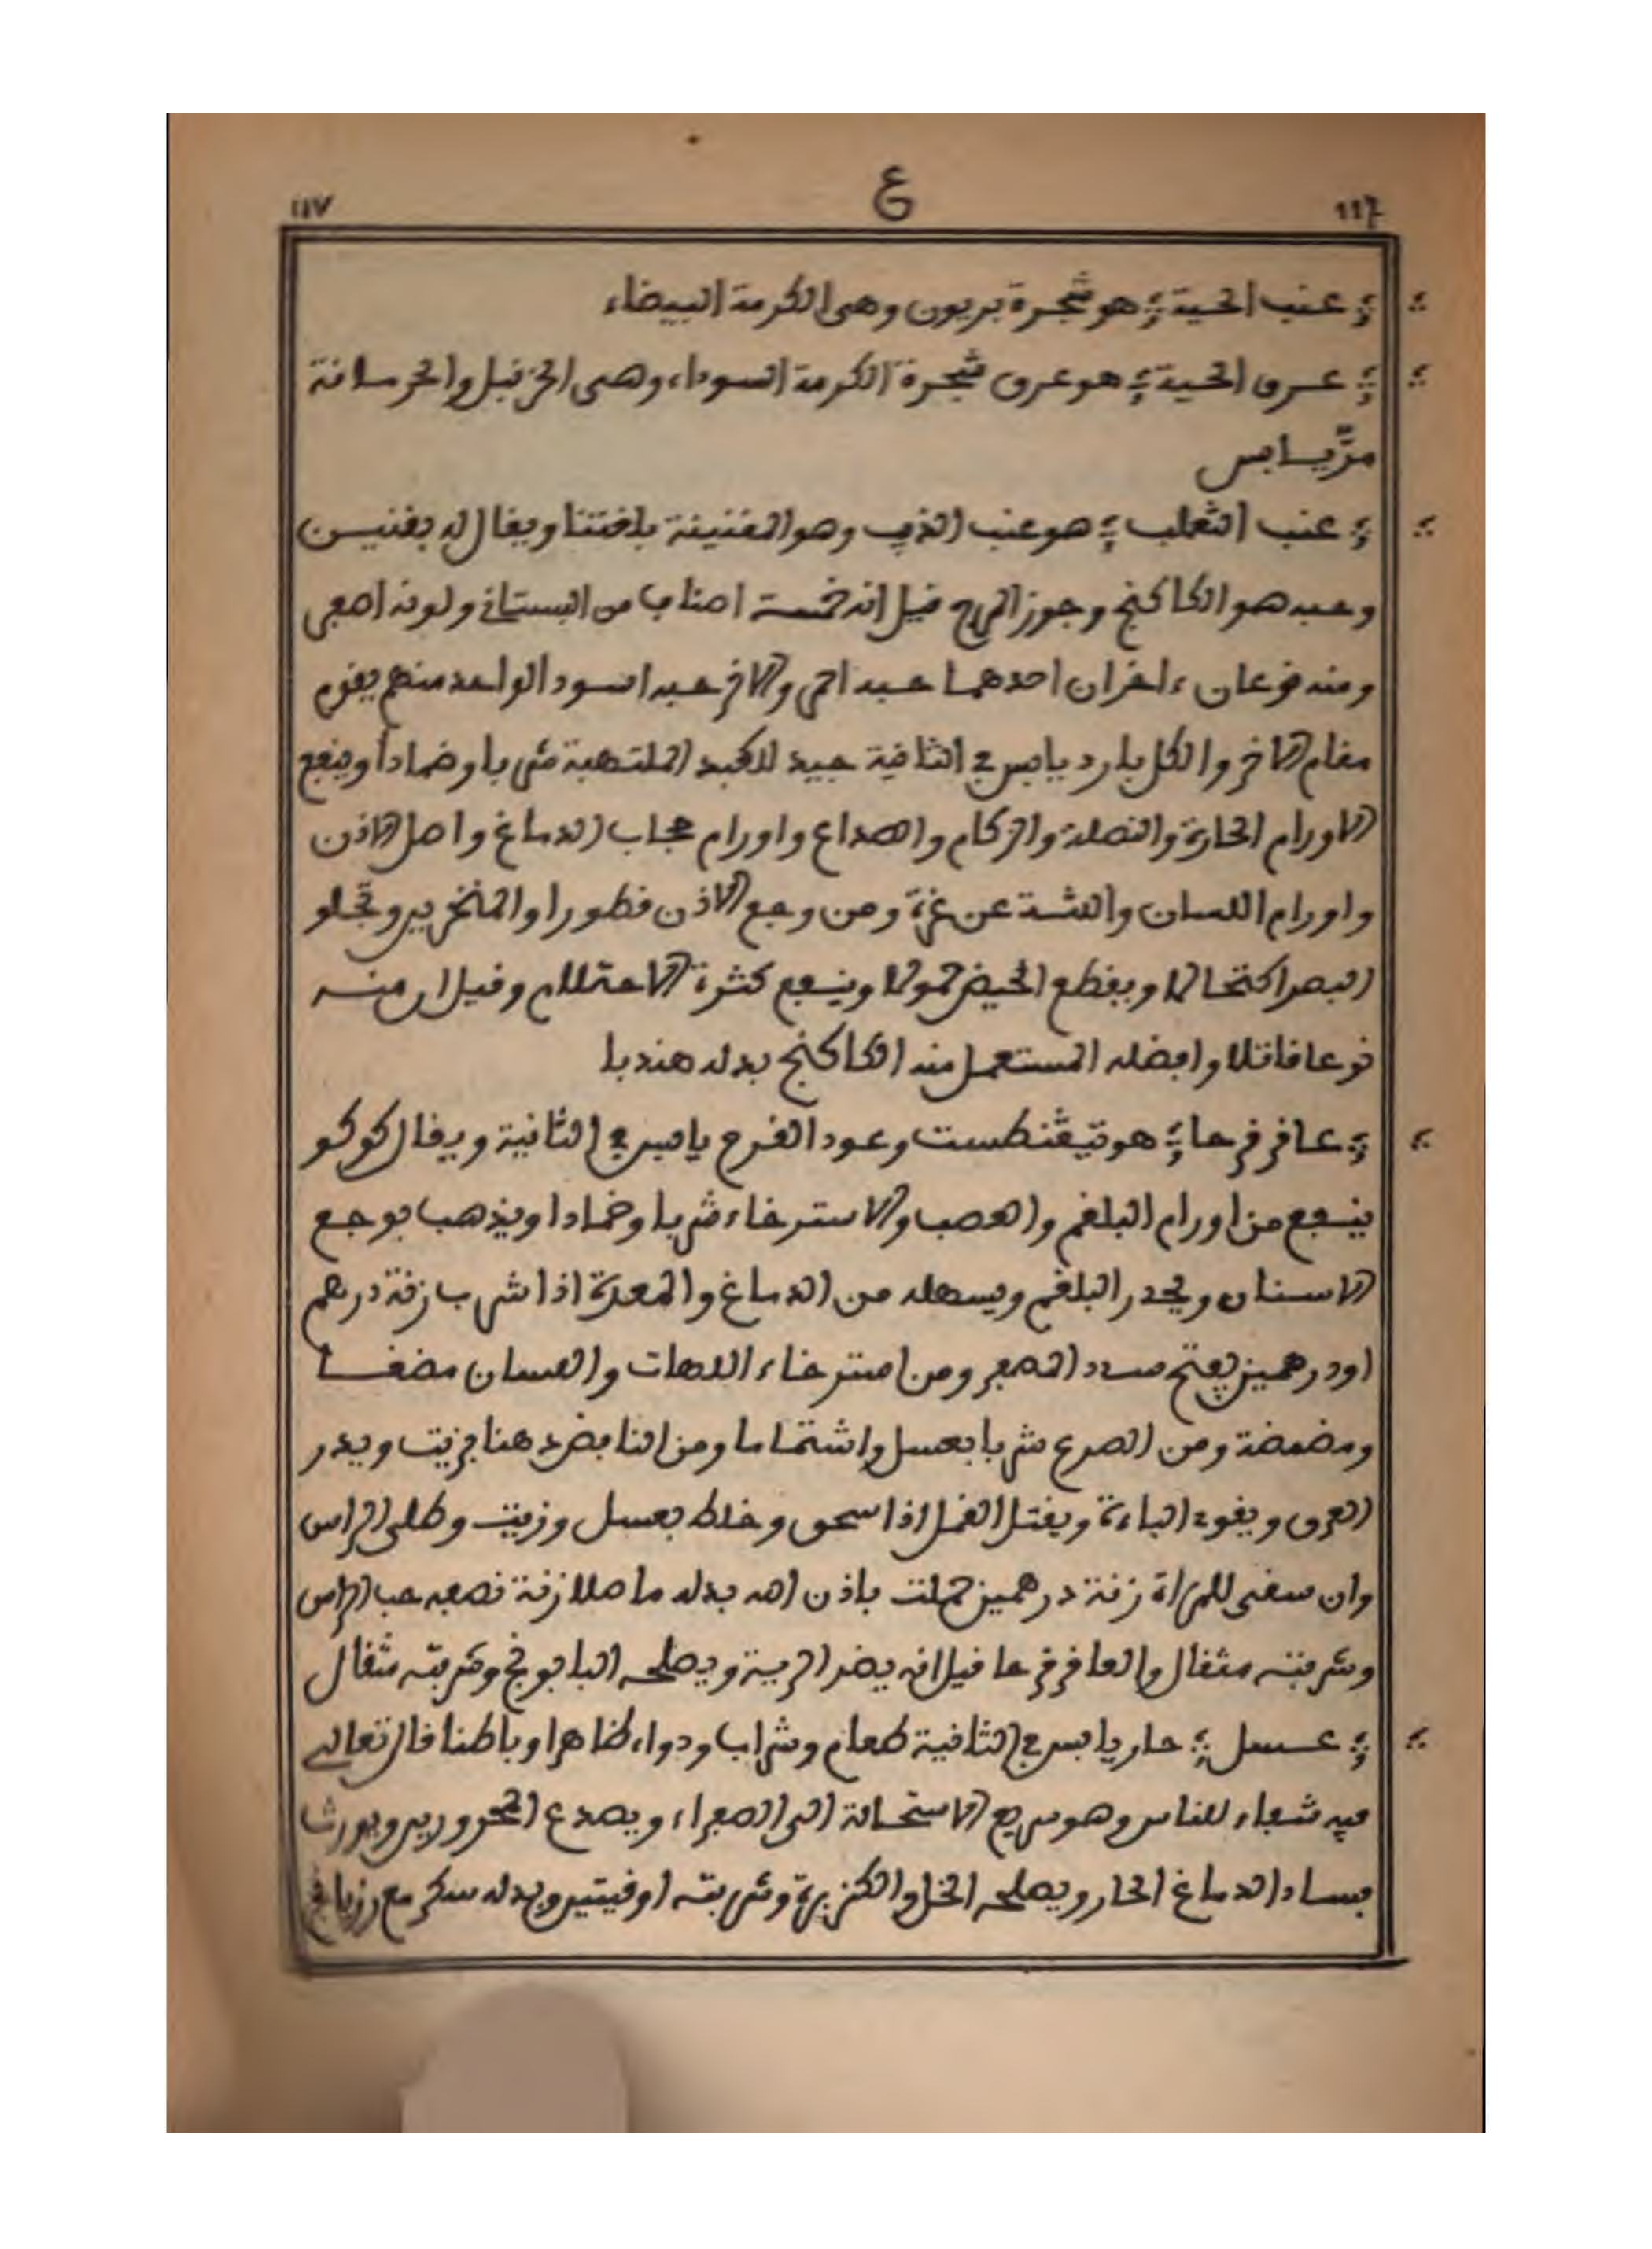 ١١٧ ع 117
عنب الحية هو شجرة بريون وهى الكرمة البيضاء
عرق الحية هو عرق شجرة الكرمة السوداء وهى الخزنبل والخرسانة
مرّ يابس
عنب الثعلب هو عنب الذيب وهو المقنينة بلغتنا ويقال له بقنيس
وحبه هو الكاكنج وجوز المرج قيل انه خمسة اصناب من البستاني ولونه اصفر
ومنه نوعان ءاخران احدهما حبه احمر والاخر حبه اسود الواحد منهم يقوم
مقام الاخر والكل بارد يابس في الثانية جيد للكبد الملتهبة شربا وضمادا وينفع
الاورام الحارة والنصلة والزكام والصداع واورام حجاب الدماغ واصل الاذن
واورام اللسان واللثة عن غرة ومن وجع الاذن قطورا والمنخرين وتجلو
البصر اكتحالا ويقطع الحيض حمولا وينفع كثرة الاحتلام وقيل ان منه
نوعا قاتلا وافضله المستعمل منه الكاكنج بدله هندبا
عاقرقرحا هو تيقنطست وعود القرح يابس في الثانية ويقال كوكو
ينفع من اورام البلغم والعصب والاسترخاء شربا وضمادا ويذهب بوجع
الاسنان ويحدر البلغم ويسهله من الدماغ والمعدة اذا شرب زنة درهم
او درهمين يفتح سدد المصفر ومن استرخاء اللهات واللسان مضغا
ومضمضة ومن الصرع شربا بعسل واشتماما ومن النافض دهنا بزيت ويدر
العرق ويقوي الباءة ويقتل القمل اذا سحق وخلط بعسل وزيت وطلى الراس
وان سقى للمراة زنة درهمين حملت باذن الله بدله ماصلا زنة نصفه حب الراس
وشربته مثقال والعاقرقرحا قيل انه يضر الرية ويصلحه البابونج وشربته مثقال
عسل حار يابس في الثانية طعام وشراب ودواء ظاهرا وباطنا قال تعالى
فيه شفاء للناس وهو سريع الاستحالة الى الصفراء ويصدع المحرورين ويورث
فساد الدماغ الحار ويصلحه الخل والكزبرة وشربته اوقيتين وبدله سكر مع رزيانج